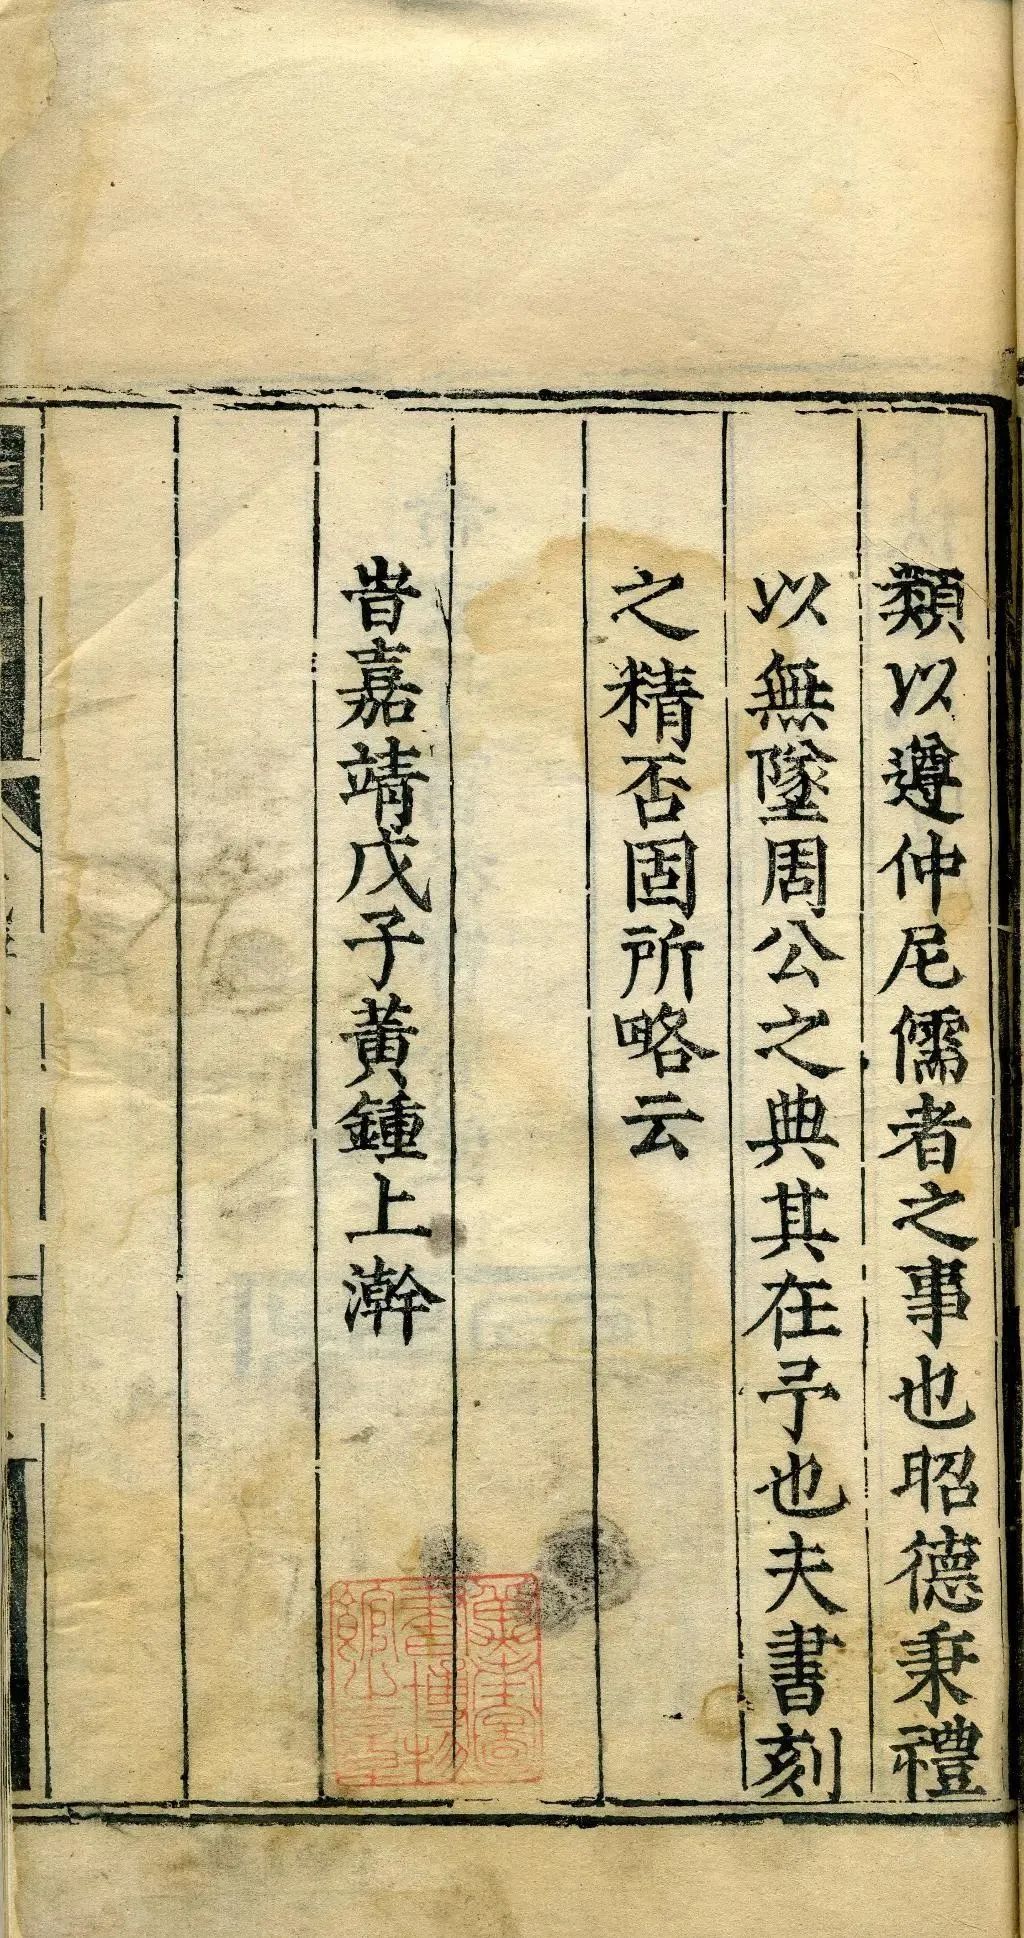 類以遵仲尼儒者之事也昭德秉禮
以無墜周公之典其在予也夫書刻
之精否固所略云
旹嘉靖戊子黃鍾上澣